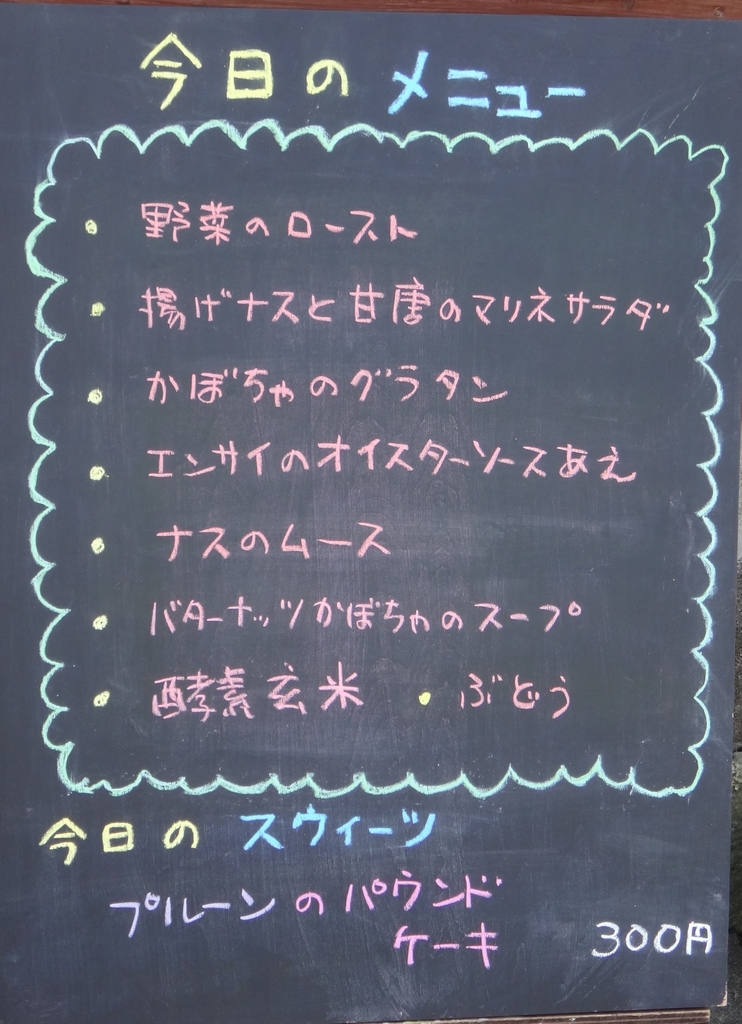 今日のメニュー
・野菜のロースト
・揚げナスと甘唐のマリネサラダ
・かぼちゃのグラタン
・エンサイのオイスターソースあえ
・ナスのムース
・バターナッツかぼちゃのスープ
・酵素玄米 ・ぶどう
今日のスウィーツ
プルーンのパウンド
ケーキ 300円